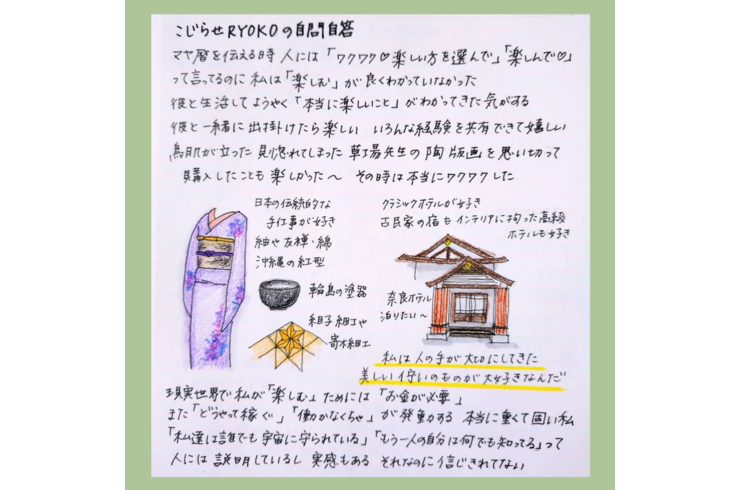 こじらせRYOKOの自問自答
マヤ暦を伝える時 人には「ワクワク♡楽しい方を選んで」「楽しんで♡」
って言ってるのに 私は「楽しむ」が良くわかっていなかった
彼と生活してようやく「本当に楽しいこと」がわかってきた気がする
彼と一緒に出掛けたら楽しい いろんな経験を共有できて嬉しい
鳥肌が立った 見惚れてしまった 草場先生の陶版画を思い切って
購入したことも楽しかった〜 その時は本当にワクワクした
日本の伝統的な
手仕事が好き
紬や友禅・綿
沖縄の紅型
輪島の塗器
組子細工や
寄木細工
クラシックホテルが好き
古民家の宿もインテリアに拘った高級
ホテルも好き
奈良ホテル
泊りたい〜
私は人の手が大切にしてきた
美しい佇いのものが大好きなんだ
現実世界で私が「楽しむ」ためには「お金が必要」
また「どうやって稼ぐ」「働かなくちゃ」が発動する 本当に重くて固い私
「私達は誰でも宇宙に守られている」「もう一人の自分は何でも知ってる」って
人には説明しているし 実感もある それなのに信じきれてない